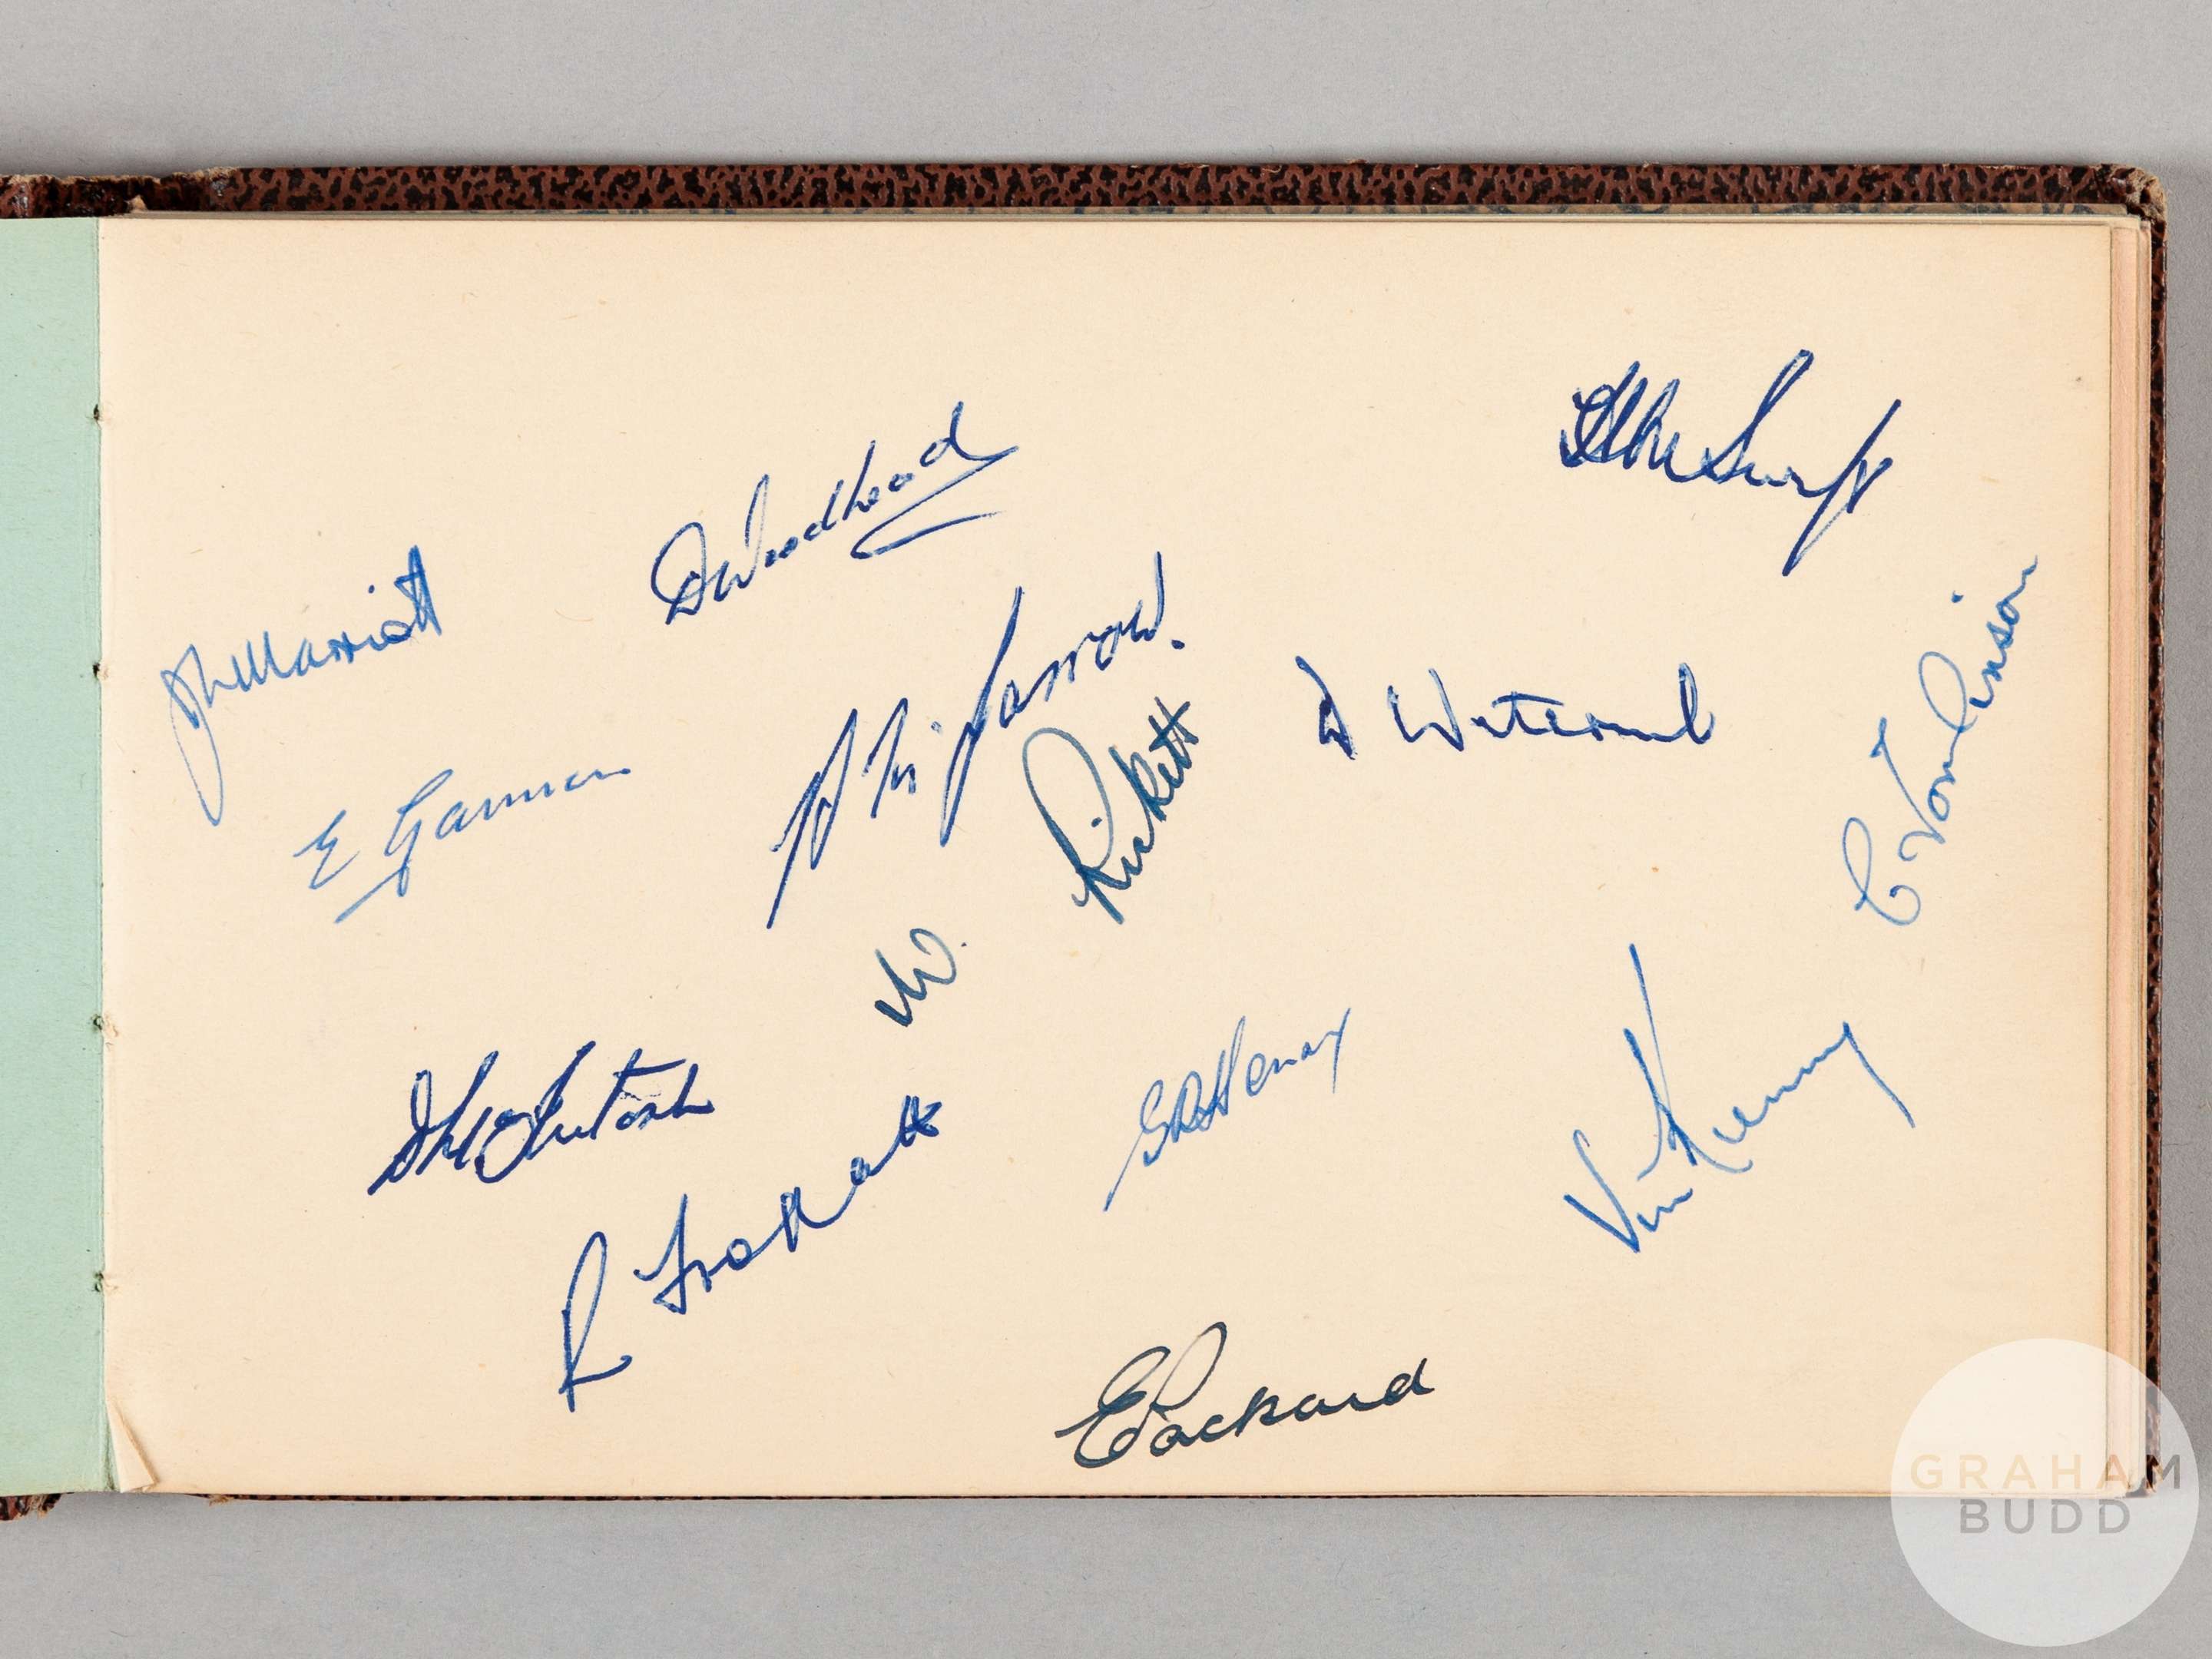 D Woodhead
J L Marriott
C Tomlinson
E Gannon
W. Rickett
D McIntosh
G R Henry
Vin Kenny
R Froggatt
E Packard
GRAHAM
BUDD